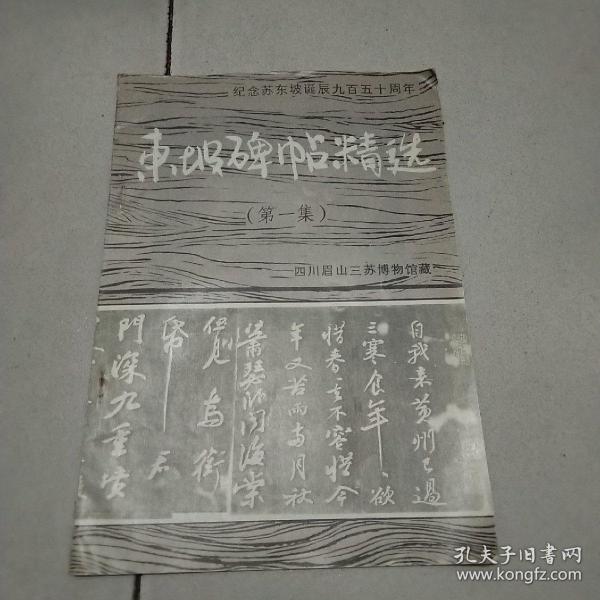 纪念苏东坡诞辰九百五十周年
東坡碑帖精选
（第一集）
四川眉山三苏博物馆藏
自我来黄州已過
三寒食年〻欲
惜春春去不容惜今
年又苦雨兩月秋
萧瑟卧闻海棠
但见乌衔
帋君
門深九重墳
孔夫子旧书网
www.kongfz.com